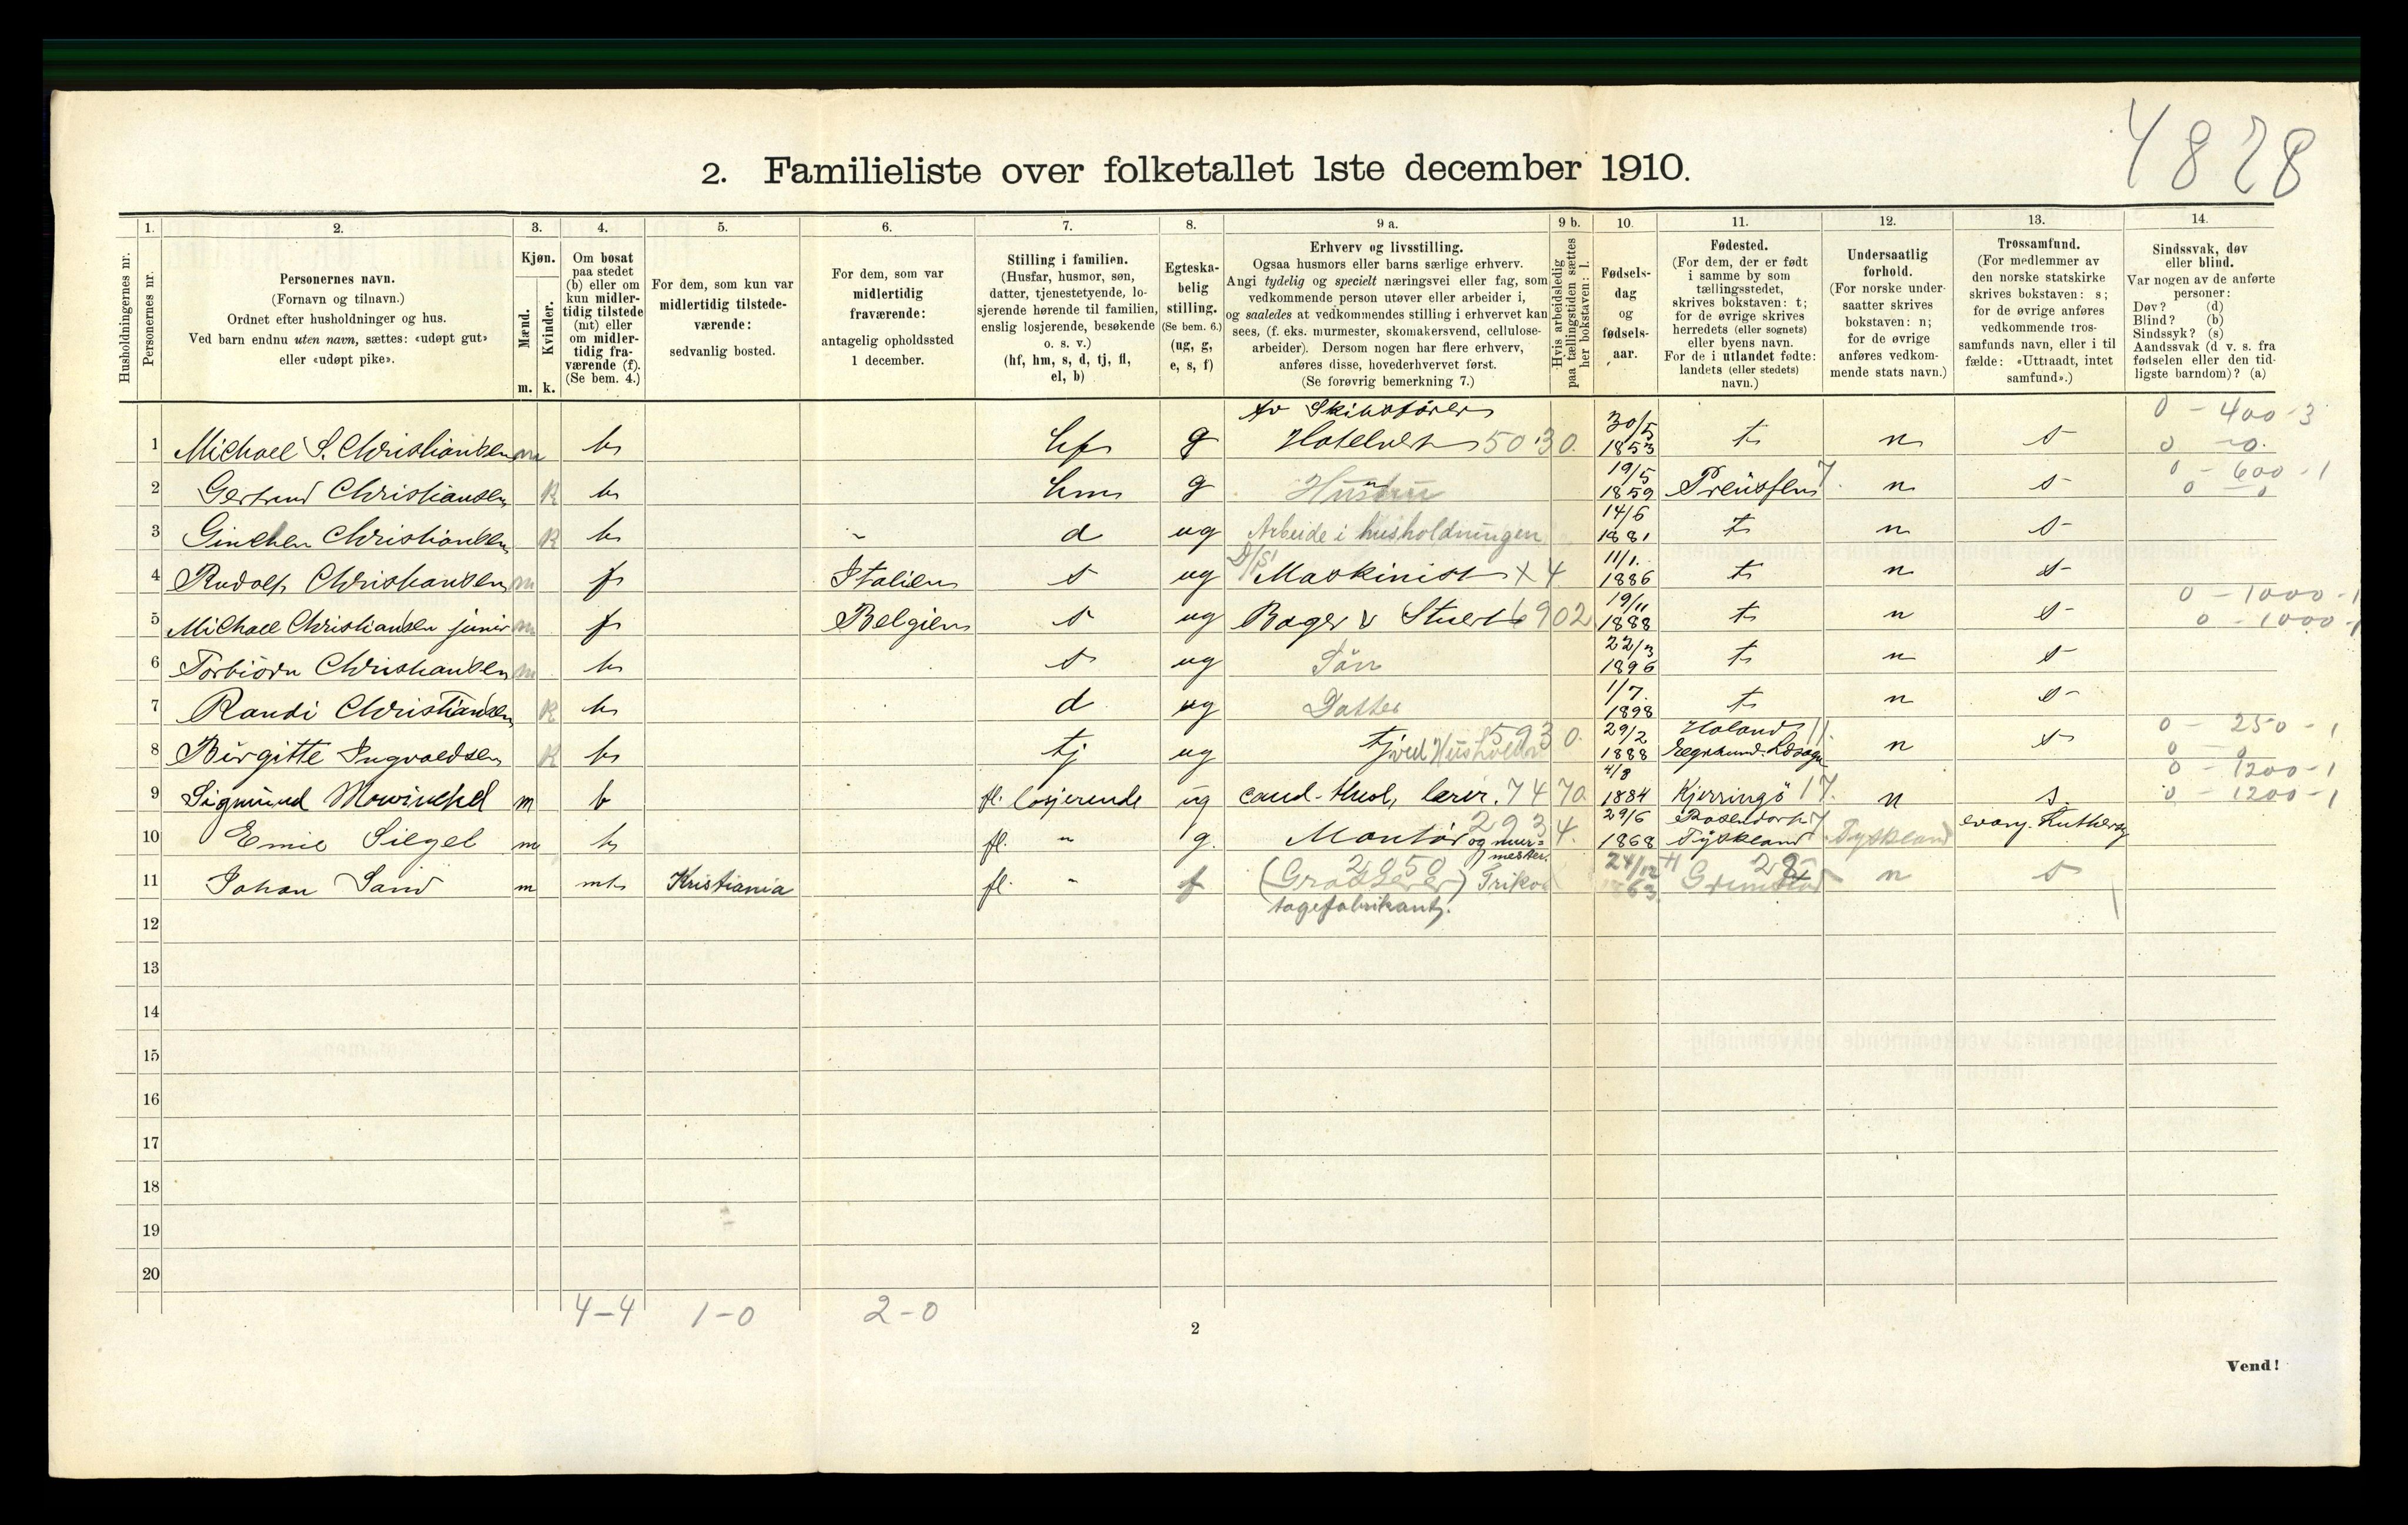 4828
2. Familieliste over folketallet 1ste december 1910.
1. 2. 3. 4. 5. 6. 7. 8. 9 a. 9 b. 10. 11. 12. 13. 14.
Husholdningernes nr.
Personernes nr.
Personernes navn.
(Fornavn og tilnavn.)
Ordnet efter husholdninger og hus.
Ved barn endnu uten navn, sættes: «udøpt gut»
eller «udøpt pike».
Kjøn.
Mænd.
Kvinder.
m. k.
Om bosat
paa stedet
(b) eller om
kun midler-
tidig tilstede
(mt) eller
om midler-
tidig fra-
værende (f).
(Se bem. 4.)
For dem, som kun var
midlertidig tilstede-
værende:
sedvanlig bosted.
For dem, som var
midlertidig
fraværende:
antagelig opholdssted
1 december.
Stilling i familien.
(Husfar, husmor, søn,
datter, tjenestetyende, lo-
sjerende hørende til familien,
enslig losjerende, besøkende
o. s. v.)
(hf, hm, s, d, tj, fl,
el, b)
Egteska-
belig
stilling.
(Se bem. 6.)
(ug, g,
e, s, f)
Erhverv og livsstilling.
Ogsaa husmors eller barns særlige erhverv.
Angi tydelig og specielt næringsvei eller fag, som
vedkommende person utøver eller arbeider i,
og saaledes at vedkommendes stilling i erhvervet kan
sees, (f. eks. murmester, skomakersvend, cellulose-
arbeider). Dersom nogen har flere erhverv,
anføres disse, hovederhvervet først.
(Se forøvrig bemerkning 7.)
Hvis arbeidsledig
paa tællingstiden sættes
her bokstaven: l.
Fødsels-
dag
og
fødsels-
aar.
Fødested.
(For dem, der er født
i samme by som
tællingsstedet,
skrives bokstaven: t;
for de øvrige skrives
herredets (eller sognets)
eller byens navn.
For de i utlandet fødte:
landets (eller stedets)
navn.)
Undersaatlig
forhold.
(For norske under-
saatter skrives
bokstaven: n;
for de øvrige
anføres vedkom-
mende stats navn.)
Trossamfund.
(For medlemmer av
den norske statskirke
skrives bokstaven: s;
for de øvrige anføres
vedkommende tros-
samfunds navn, eller i til
fælde: «Uttraadt, intet
samfund».)
Sindssvak, døv
eller blind.
Var nogen av de anførte
personer:
Døv? (d)
Blind? (b)
Sindssyk? (s)
Aandssvak (d v. s. fra
fødselen eller den tid-
ligste barndom)? (a)
fv Skibsfører 30/5 0 - 400 - 3
1 Michael S. Christiansen m b hf g Hotelvert 5030. 1853 t n s 0 - 0.
19/5 0 - 600 - 1
2 Gertrud Christiansen k b hm g Hustru 1859 Preussen 7 n s 0 - 0
14/6
3 Ginchen Christiansen k b d ug Arbeide i husholdningen 1881 t n s
D/S 11/1.
4 Rudolf Christiansen m f Italien s ug Maskinist X 4 1886 t n s
19/11 0 - 1000 - 1
5 Michael Christiansen junir m f Belgien s ug Bager & Stuert 6902 1888 t n s 0 - 1000 - 1
22/3
6 Torbiörn Christiansen m b s ug Sön 1896 t n s
1/7.
7 Randi Christiansen k b d ug Datter 1898 t n s
5930. 29/2 11. 0 - 250 - 1
8 Birgitte Ingvaldsen k b tj ug tj ved 1888 n s 0 - 0
4/8 0 - 1200 - 1
9 Sigmund Mowinckel m b fl. losjerende ug cand. theol, lærer. 7470 1884 Kjerringö 17. n s 0 - 1200 - 1
2934. 29/6 7
10 Emil Siegel m b fl. " g. Montör og mur-mester. 1868 Tyskland Tyskland evang. Luthersk
2950 24/12 28
11 Johan Sand m mt Kristiania fl. " f Triko- 63. Grimstad n s
tagefabrikant.
12
13
14
15
16
17
18
19
20
4-4 1-0 2-0
2
Vend!